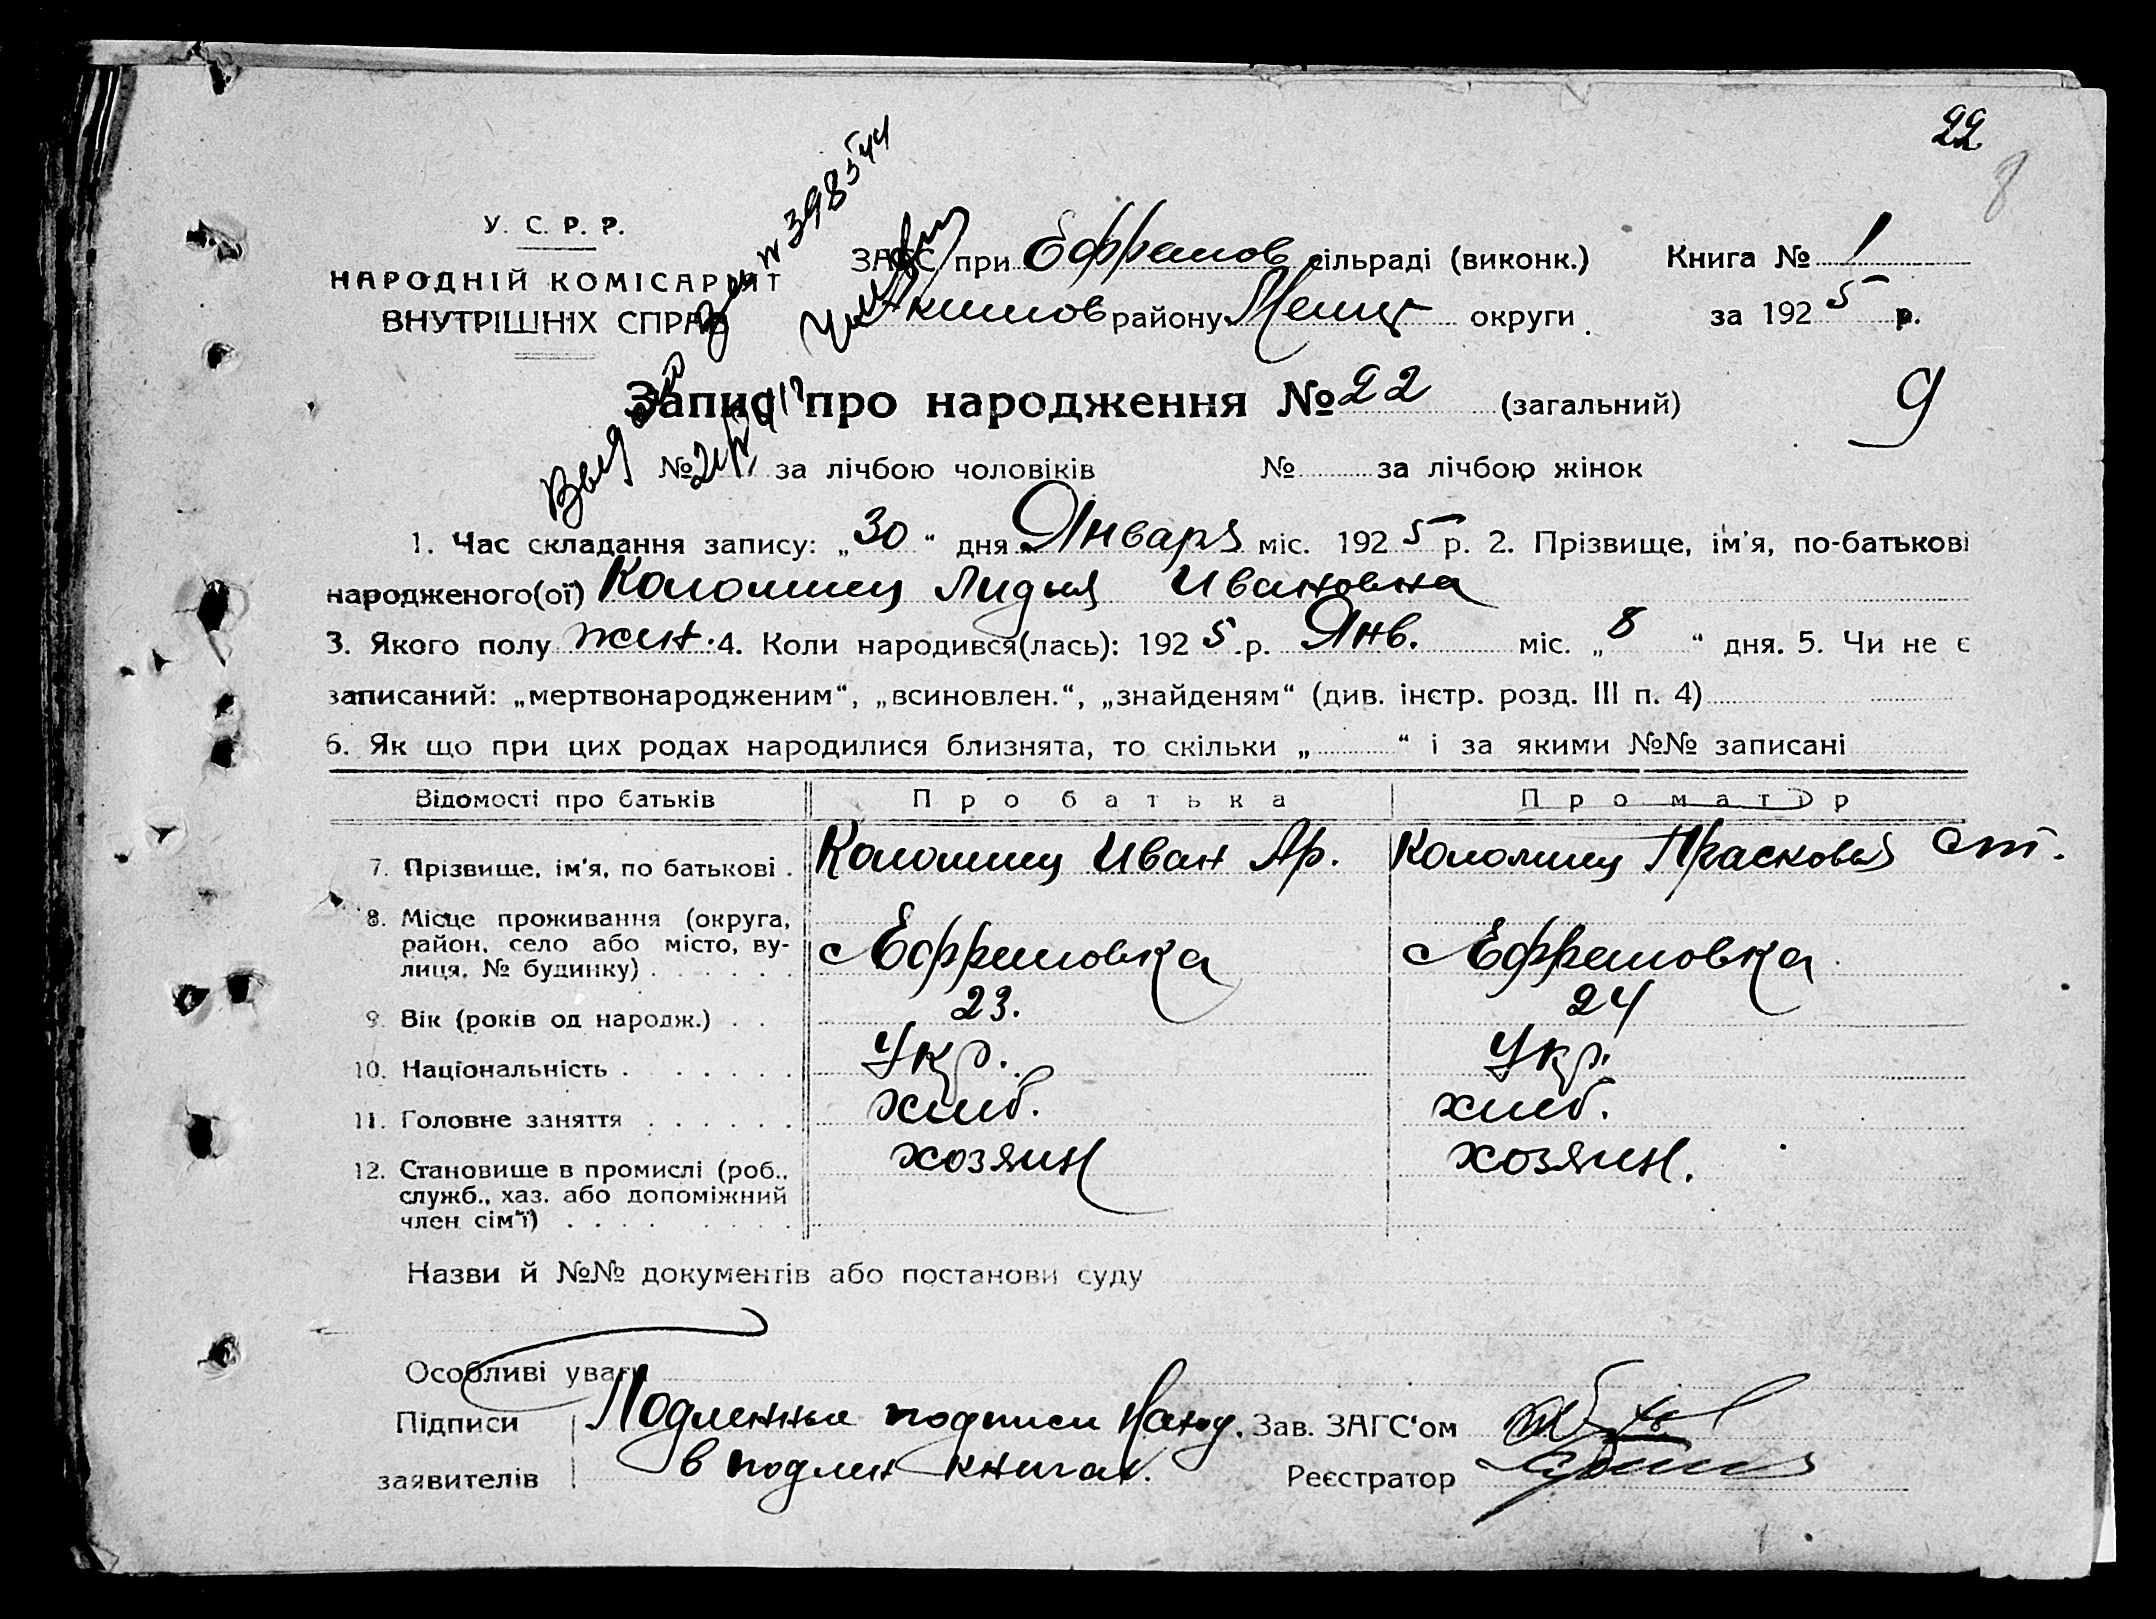 22
8
У. С. Р. Р.
НАРОДНІЙ КОМІСАРІЯТ
ВНУТРІШНІХ СПРАВ
№ 398544
ЗАГС при Ефремов сільраді (виконк.)
Акимов району Мелит округи
Книга № 1
за 1925 р.
Запис про народження № 22 (загальний)
9
№ за лічбою чоловіків № за лічбою жінок
1. Час складання запису: „30“ дня Января міс. 1925 р. 2. Прізвище, ім'я, по-батькові
народженого(ої) Коломиец Лидия Ивановна
3. Якого полу жен. 4. Коли народився(лась): 1925 р. Янв. міс. „8“ дня. 5. Чи не є
записаний: „мертвонародженим“, „всиновлен.“, „знайденям“ (див. інстр. розд. III п. 4)
6. Як що при цих родах народилися близнята, то скільки „ “ і за якими №№ записані
Відомості про батьків Про батька Про матір
7. Прізвище, ім'я, по батькові . Коломиец Иван Ар. Коломиец Прасковья Ст.
8. Місце проживання (округа,
район, село або місто, ву-
лиця, № будинку) . . . . . . с Ефремовка с Ефремовка
9. Вік (років од народж.) . . 23. 24
10. Національність . . . . . . . Укр. Укр.
11. Головне заняття . . . . . . хлеб. хлеб.
12. Становище в промислі (роб., хозяин хозяин.
служб., хаз. або допоміжний
член сім'ї) . . . . . . . .
Назви й №№ документів або постанови суду
Особливі уваги
Підписи Подленные подписи наход. Зав. ЗАГС'ом
заявителів в подлен книгах. Реєстратор